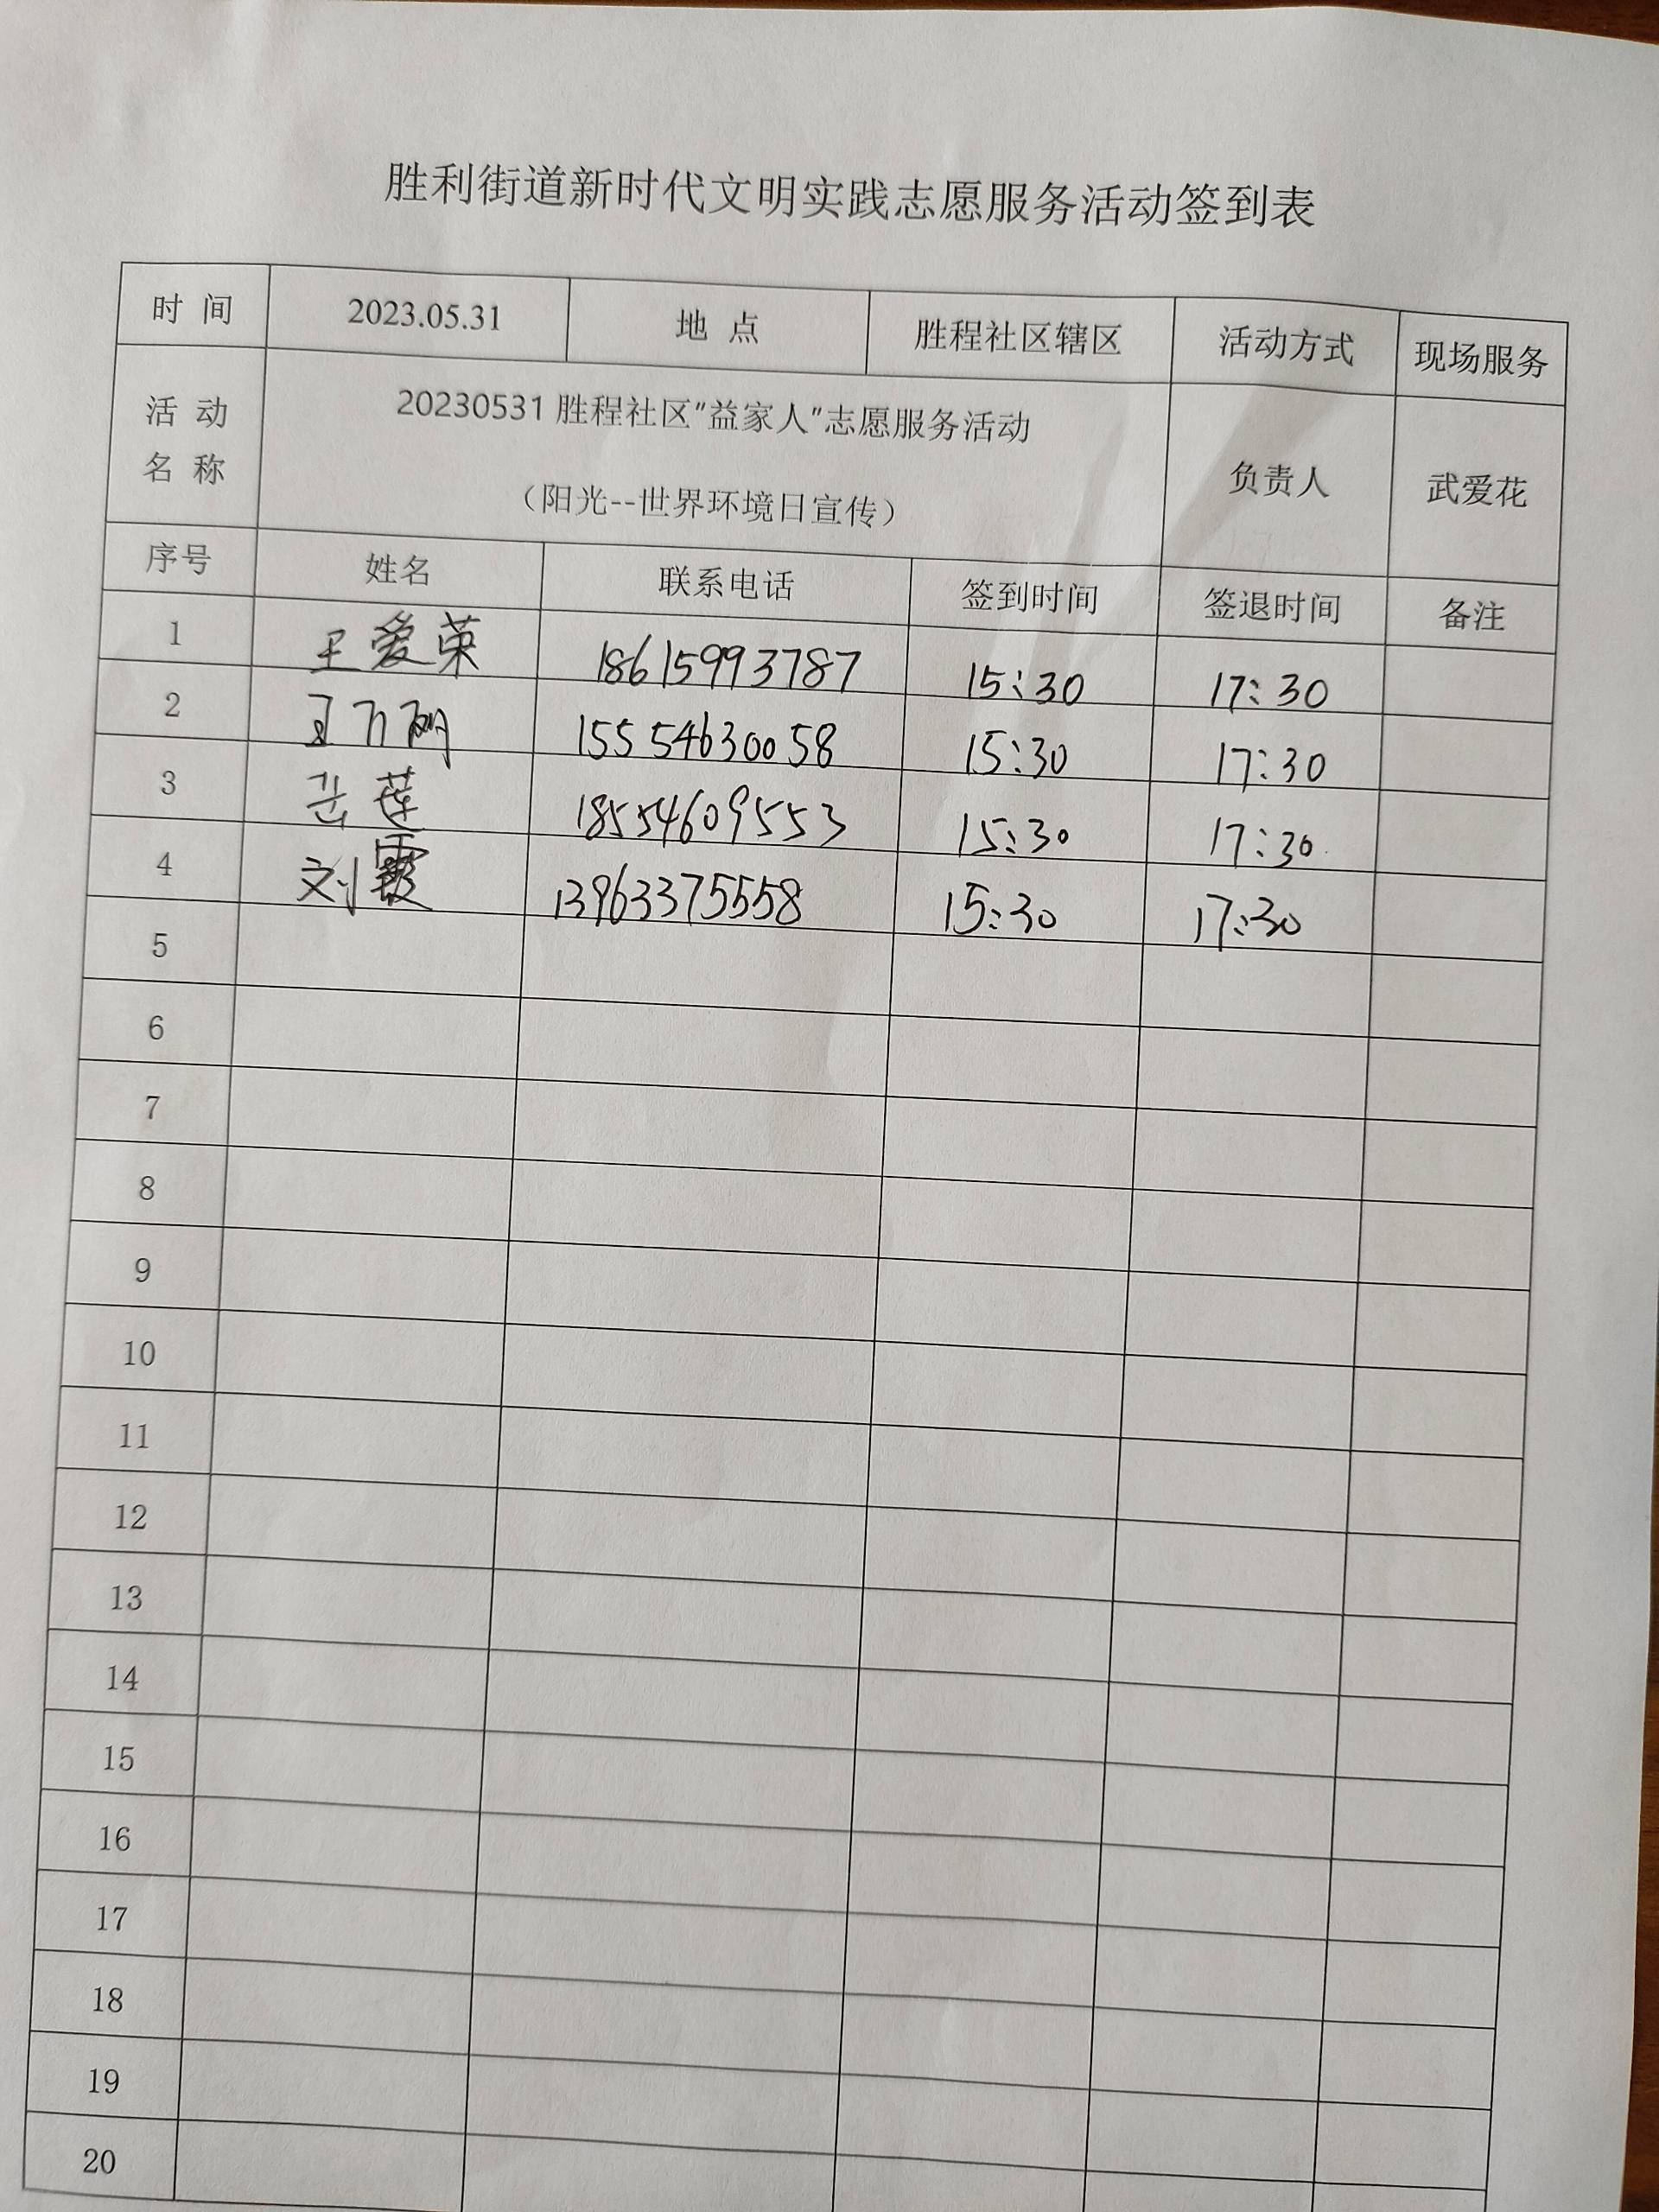 胜利街道新时代文明实践志愿服务活动签到表
时 间 2023.05.31 地 点 胜程社区辖区 活动方式 现场服务
活 动 名 称 20230531 胜程社区"益家人"志愿服务活动
（阳光--世界环境日宣传） 负责人 武爱花
序号 姓名 联系电话 签到时间 签退时间 备注
1 王爱荣 18615993787 15:30 17:30
2 15554630058 15:30 17:30
3 岳莲 18554609553 15:30 17:30
4 刘霞 13963375558 15:30 17:30
5
6
7
8
9
10
11
12
13
14
15
16
17
18
19
20